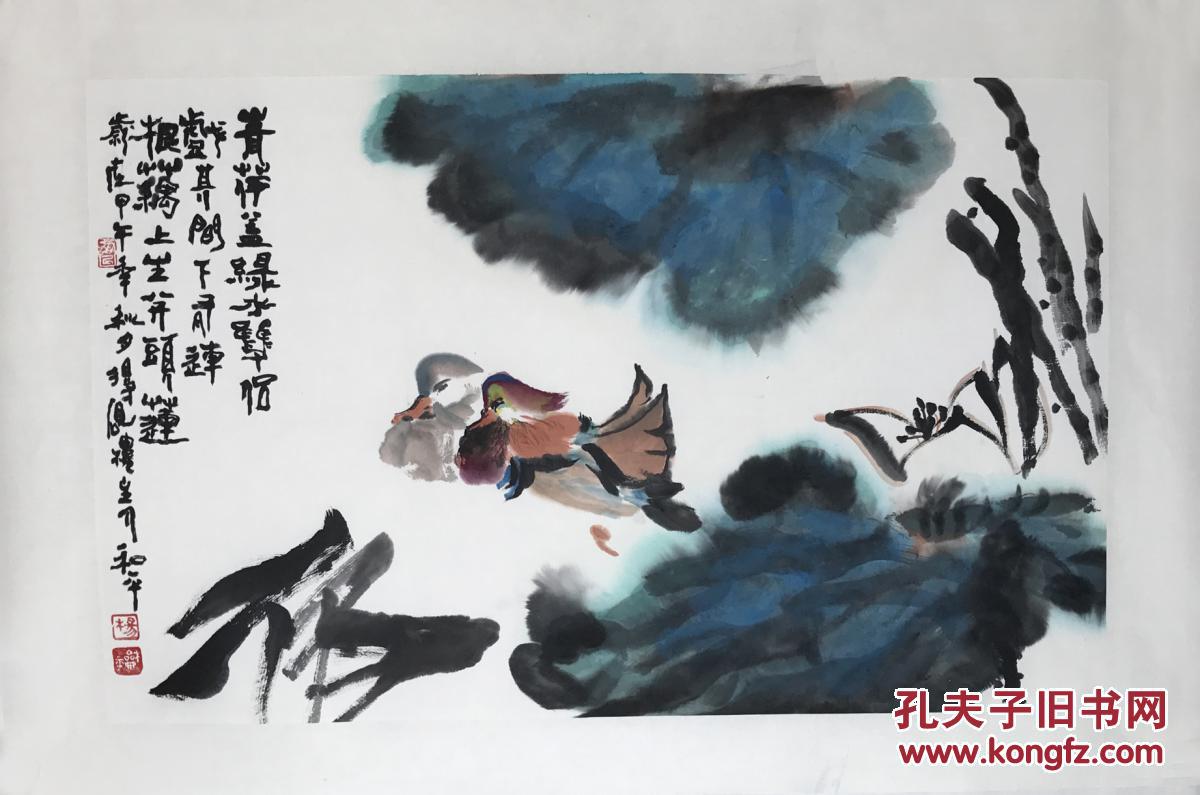 青荷盖緑水雙侣
戲其間下有連
根藕上生并頭蓮
歲在甲午年秋夕得硯樓主和平
楊
孔夫子旧书网
www.kongfz.com